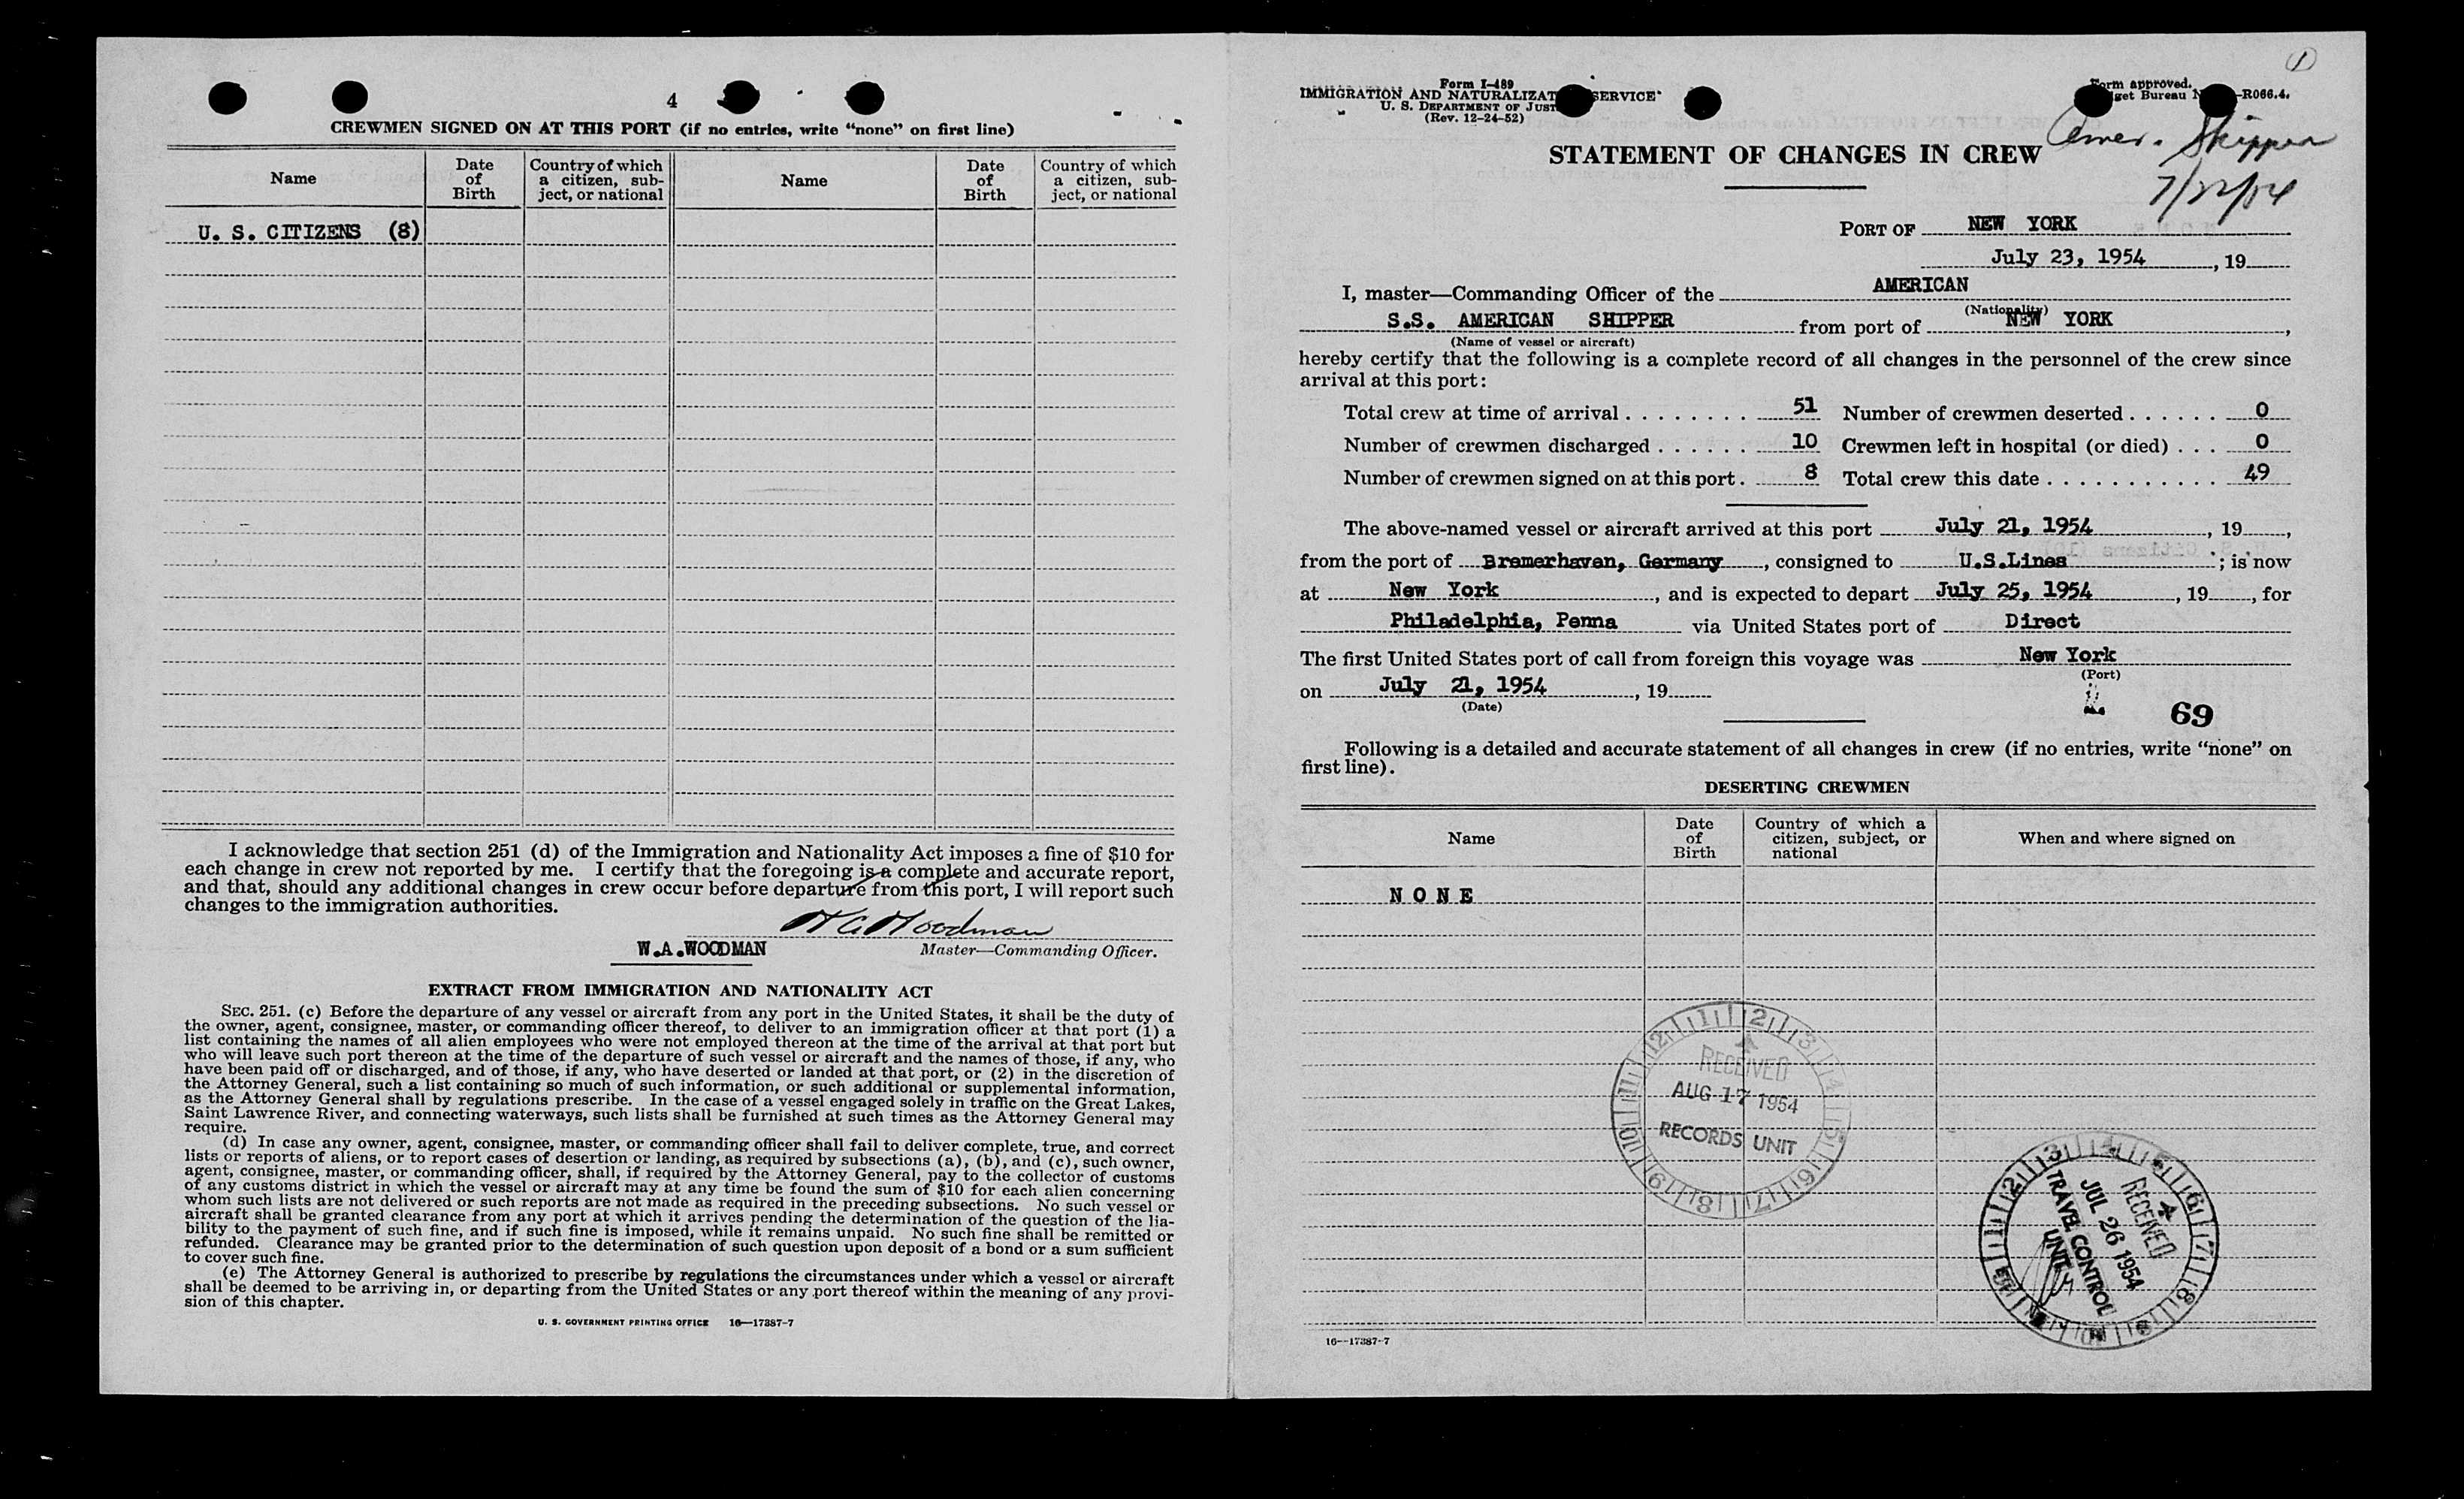 4
CREWMEN SIGNED ON AT THIS PORT (if no entries, write “none” on first line)
Name
Date of Birth
Country of which a citizen, sub-ject, or national
Name
Date of Birth
Country of which a citizen, sub-ject, or national
U. S. CITIZENS (8)
I acknowledge that section 251 (d) of the Immigration and Nationality Act imposes a fine of $10 for
each change in crew not reported by me. I certify that the foregoing is a complete and accurate report,
and that, should any additional changes in crew occur before departure from this port, I will report such
changes to the immigration authorities.
W.A.WOODMAN
Master—Commanding Officer.
EXTRACT FROM IMMIGRATION AND NATIONALITY ACT
SEC. 251. (c) Before the departure of any vessel or aircraft from any port in the United States, it shall be the duty of
the owner, agent, consignee, master, or commanding officer thereof, to deliver to an immigration officer at that port (1) a
list containing the names of all alien employees who were not employed thereon at the time of the arrival at that port but
who will leave such port thereon at the time of the departure of such vessel or aircraft and the names of those, if any, who
have been paid off or discharged, and of those, if any, who have deserted or landed at that port, or (2) in the discretion of
the Attorney General, such a list containing so much of such information, or such additional or supplemental information,
as the Attorney General shall by regulations prescribe. In the case of a vessel engaged solely in traffic on the Great Lakes,
Saint Lawrence River, and connecting waterways, such lists shall be furnished at such times as the Attorney General may
require.
(d) In case any owner, agent, consignee, master, or commanding officer shall fail to deliver complete, true, and correct
lists or reports of aliens, or to report cases of desertion or landing, as required by subsections (a), (b), and (c), such owner,
agent, consignee, master, or commanding officer, shall, if required by the Attorney General, pay to the collector of customs
of any customs district in which the vessel or aircraft may at any time be found the sum of $10 for each alien concerning
whom such lists are not delivered or such reports are not made as required in the preceding subsections. No such vessel or
aircraft shall be granted clearance from any port at which it arrives pending the determination of the question of the lia-
bility to the payment of such fine, and if such fine is imposed, while it remains unpaid. No such fine shall be remitted or
refunded. Clearance may be granted prior to the determination of such question upon deposit of a bond or a sum sufficient
to cover such fine.
(e) The Attorney General is authorized to prescribe by regulations the circumstances under which a vessel or aircraft
shall be deemed to be arriving in, or departing from the United States or any port thereof within the meaning of any provi-
sion of this chapter.
U. S. GOVERNMENT PRINTING OFFICE 16—17387-7
1
Form I-489
IMMIGRATION AND NATURALIZAT SERVICE
U. S. DEPARTMENT OF JUST
(Rev. 12-24-52)
Form approved.
get Bureau N -R066.4.
Amer. Shipper
STATEMENT OF CHANGES IN CREW
PORT OF NEW YORK
July 23, 1954, 19
I, master—Commanding Officer of the AMERICAN
(Nationality)
S.S. AMERICAN SHIPPER from port of NEW YORK,
(Name of vessel or aircraft)
hereby certify that the following is a complete record of all changes in the personnel of the crew since
arrival at this port:
Total crew at time of arrival . . . . . . . . 51 Number of crewmen deserted . . . . . . 0
Number of crewmen discharged . . . . . . 10 Crewmen left in hospital (or died) . . . 0
Number of crewmen signed on at this port . 8 Total crew this date . . . . . . . . . . . 49
The above-named vessel or aircraft arrived at this port July 21, 1954, 19,
from the port of Bremerhaven, Germany, consigned to U.S.Lines; is now
at New York, and is expected to depart July 25, 1954, 19, for
Philadelphia, Penna via United States port of Direct
The first United States port of call from foreign this voyage was New York
(Port)
on July 21, 1954, 19
(Date)
69
Following is a detailed and accurate statement of all changes in crew (if no entries, write “none” on
first line).
DESERTING CREWMEN
Name
Date of Birth
Country of which a citizen, subject, or national
When and where signed on
N O N E
RECEIVED
AUG 17 1954
RECORDS UNIT
RECEIVED
JUL 26 1954
TRAVEL CONTROL
UNIT
16—17387-7